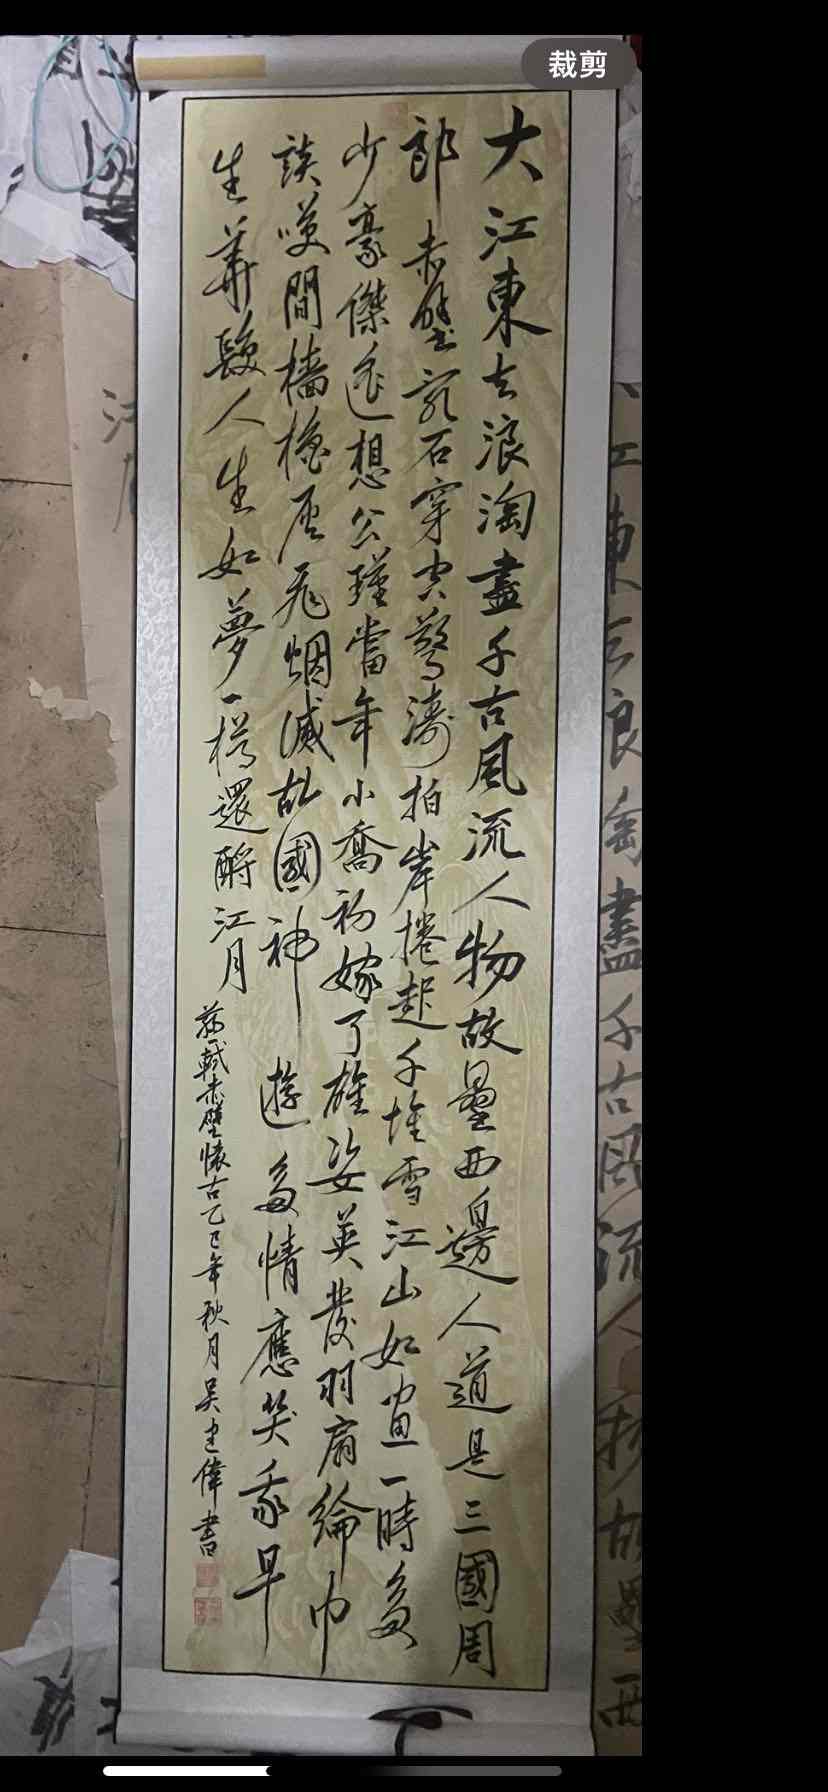 裁剪
大江東去浪淘盡千古風流人物故壘西邊人道是三國周
郎赤壁亂石穿空驚濤拍岸捲起千堆雪江山如畫一時多
少豪傑遙想公瑾當年小喬初嫁了雄姿英發羽扇綸巾
談咲間檣櫓灰飛烟滅故國神遊多情應笑我早
生華髮人生如夢一樽還酹江月
蘇軾赤壁懷古乙巳年秋月吳建偉書